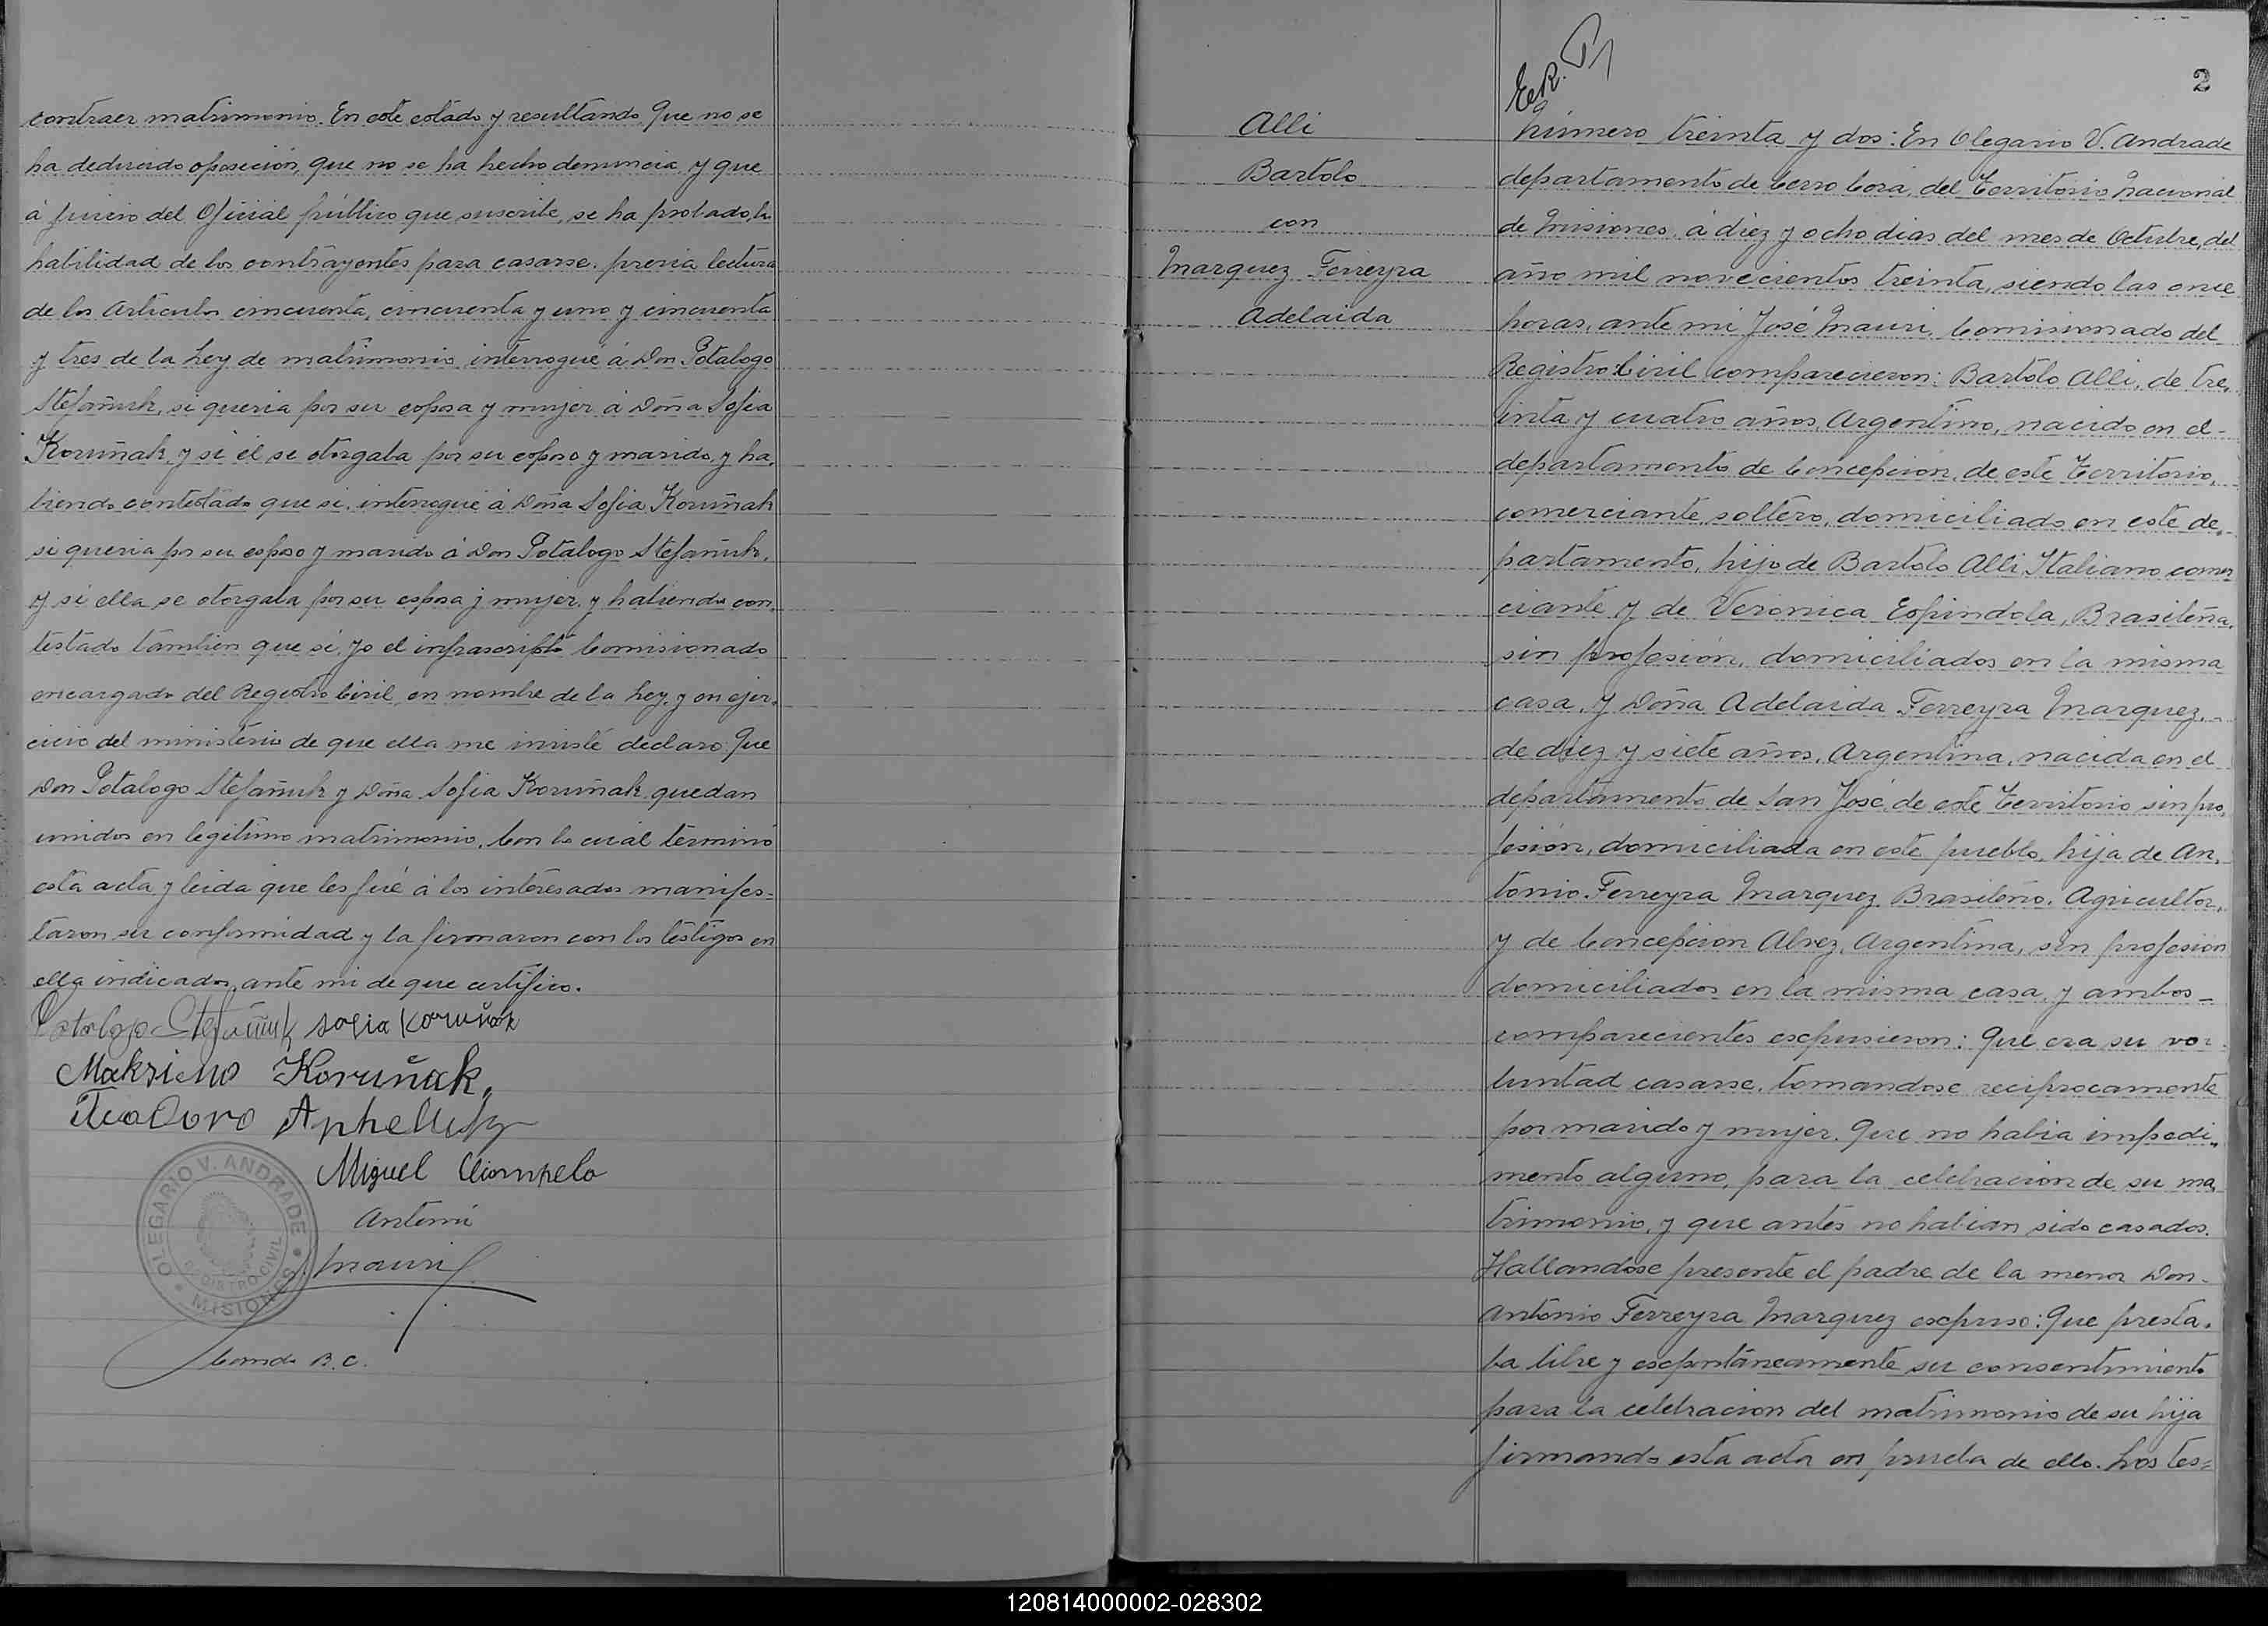 contraer matrimonio. En este estado y resultando, Que no se
ha deducido oposición, que no se ha hecho denuncia, y que
á juicio del Oficial público que suscrite, se ha probado, la
habilidad de los contrayentes para casarse. previa lectura
de los Articulos cincuenta, cincuenta y uno y cincuenta
y tres de la Ley de matrimonio, interrogué á Don Potalogo
Stefañuk, si queria por su esposa y mujer á Doña Sofia
Koruñak, y si él se otorgaba por su esposo y marido, y ha,
biendo contestado que si, interrogué á Doña Sofia Koruñak
si queria por su esposo y marido á Don Potalogo Stefañuk,
y si ella se otorgaba por su esposa y mujer, y habiendo con,
testado tambien que si, yo el infrascripto Comisionado
encargado del Registro Civil, en nombre de la Ley, y en ejer,
cicio del ministerio de que ella me inviste declaro: Que
Don Potalogo Stefañuk y Doña Sofia Koruñak, quedan
unidos en legitimo matrimonio. Con lo cuál terminó
esta acta, y leida que les fué á los interesados manifes=
taron su conformidad y la firmaron con los testigos en
ella indicados, ante mi de que certifico.
Potalogo Stefañuk sofia Koruñak
Maksimo Koruñak.
Teodoro
Miguel
Antemi
Mauri
OLEGARIO V. ANDRADE
REGISTRO CIVIL
MISIONES
Comdo R.C.
2
Alli
Bartolo
con
Marquez Ferreyra
Adelaida
Número treinta y dos: En Olegario V. Andrade
departamento de Cerro Corá, del Territorio Nacional
de Misiones, á diez y ocho dias del mes de Octubre, del
año mil novecientos treinta, siendo las once
horas, ante mi José Mauri, Comisionado del
Registro Civil, comparecieron: Bartolo Alli, de tre,
inta y cuatro años, Argentino, nacido en el-
departamento de Concepción, de este Territorio,
comerciante, soltero, domiciliado en este de,
partamento, hijo de Bartolo Alli, Italiano comer
ciante y de Veronica Espindola, Brasileña,
sin profesión, domiciliados en la misma
casa, y Doña Adelaida Ferreyra Marquez,
de diez y siete años, Argentina, nacida en el
departamento de San José, de este Territorio sin pro,
fesión, domiciliada en este pueblo, hija de An,
tonio Ferreyra Marquez, Brasileño, Agricultor,
y de Concepcion Alvez, Argentina, sin profesion
domiciliados en la misma casa, y ambos -
comparecientes expusieron: Que era su vo-
luntad casarse, tomandose reciprocamente
por marido y mujer. Que no habia impedi,,
mento alguno, para la celebracion de su ma,
trimonio, y que antes no habian sido casados.
Hallandose presente el padre de la menor Don-
Antonio Ferreyra Marquez expuso: Que presta,
ba libre y espontáneamente su consentimiento
para la celebracion del matrimonio de su hija
firmando esta acta en prueba de ello. Los tes=
120814000002-028302